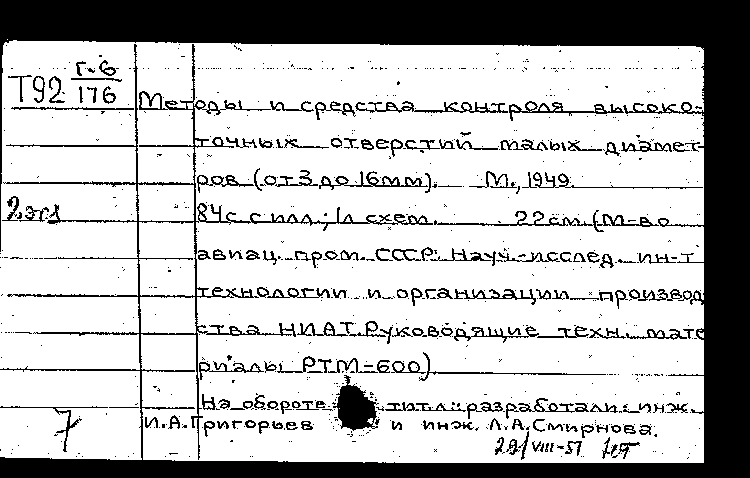 Т92 Г-6/176
Методы и средства контроля высоко-
точных отверстий малых диамет-
ров (от 3 до 16мм). М., 1949.
2 экз 84с с илл.; 1л схем. 22см. (М-во
авиац. пром. СССР. Науч.-исслед. ин-т
технологии и организации производ
ства НИАТ. Руководящие техн. мате
риалы РТМ-600)
На обороте тит.л.: разработали: инж.
И.А.Григорьев и инж. Л.А.Смирнова.
7 29/VIII-51